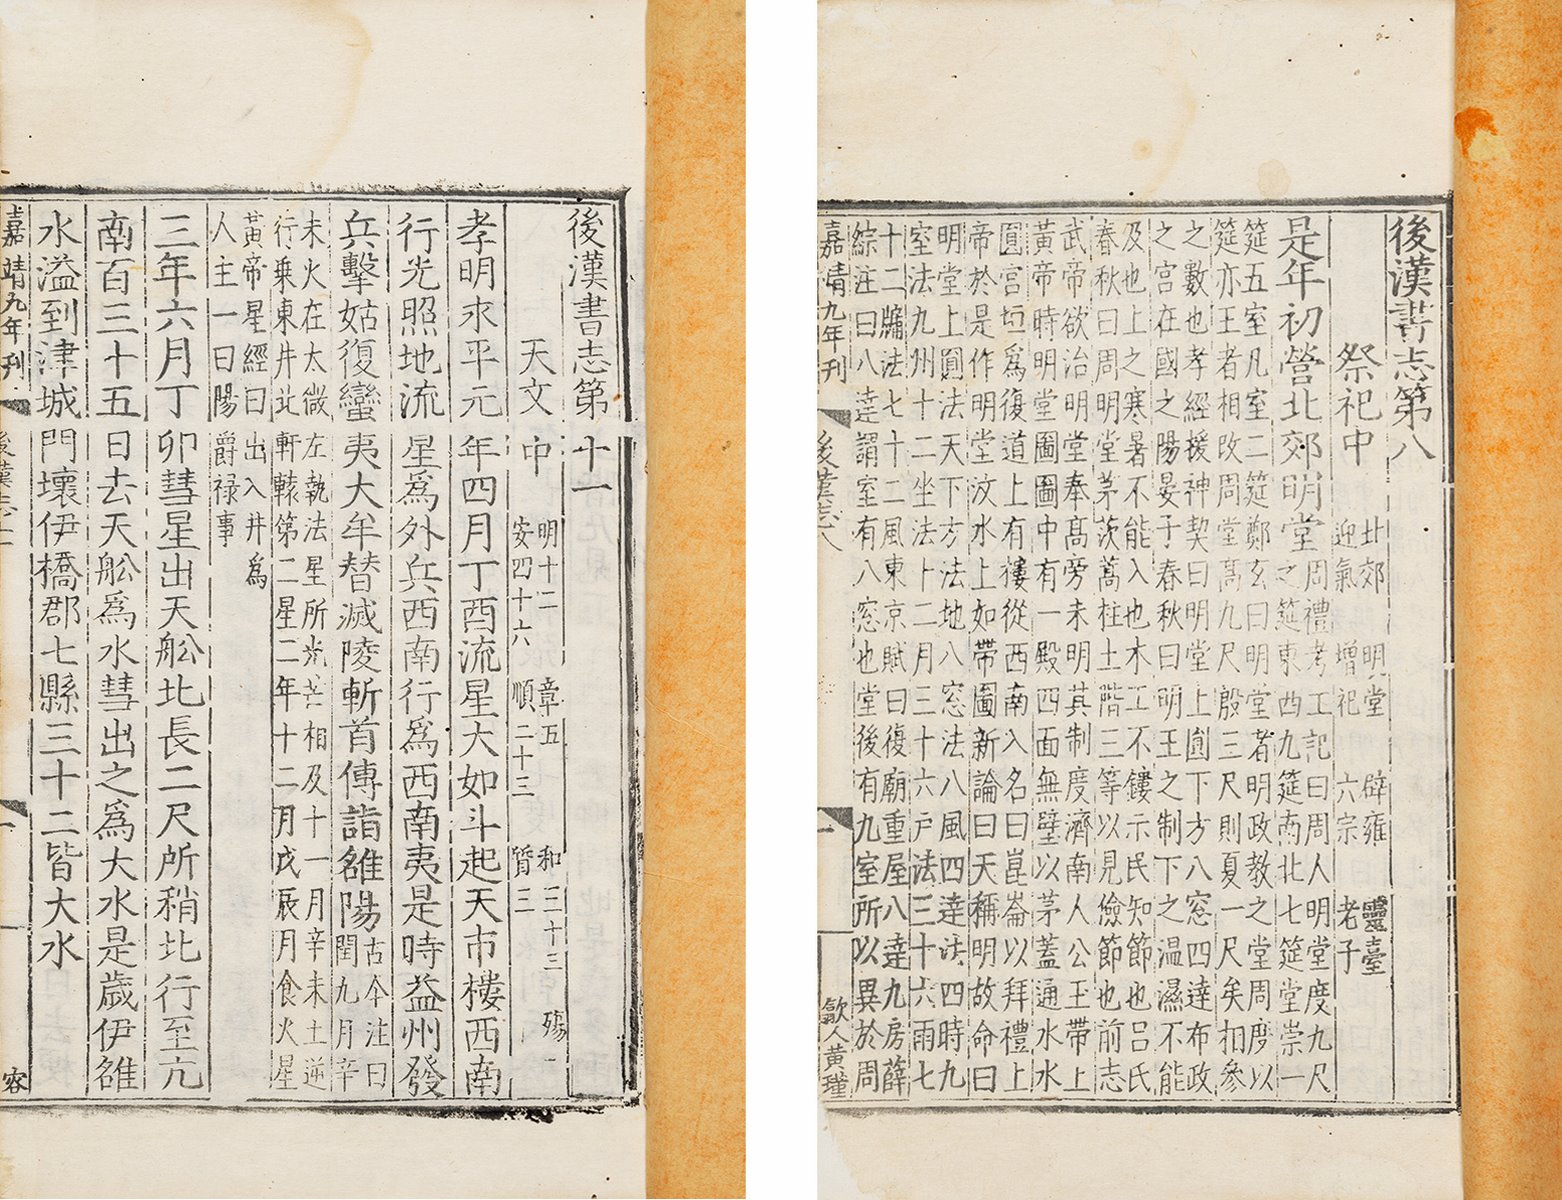 後漢書志第八
祭祀中
北郊　明堂　辟雍　靈臺
迎氣　增祀　六宗　老子
是年初營北郊明堂
周禮考工記曰周人明堂度九尺
之筵東西九筵南北七筵堂崇一
筵五室凡室二筵鄭玄曰明堂者明政教之堂周度以
筵亦王者相改周堂高九尺殷三尺則夏一尺矣相參
之數也孝經援神契曰明堂上圓下方八窓四達布政
之宮在國之陽晏子春秋曰明王之制下之温濕不能
及也上之寒暑不能入也木工不鏤示民知節也呂氏
春秋曰周明堂茅茨蒿柱土階三等以見儉節也前志
武帝欲治明堂奉髙旁未明其制度濟南人公王帶上
黃帝時明堂圖圖中有一殿四面無壁以茅蓋通水水
圓宮垣爲復道上有樓從西南入名曰崑崙以拜禮上
帝於是作明堂汶水上如帶圖新論曰天稱明故命曰
明堂上圓法天下方法地八窓法八風四達法四時九
室法九州十二坐法十二月三十六戸法三十六雨七
十二牖法七十二風東京賦曰復廟重屋八達九房薛
綜注曰八達謂室有八窓也堂後有九室所以異於周
嘉靖九年刊　後漢志八　一　歙人黃瑾
後漢書志第十一
天文中
明十二　章五　和三十三　殤一
安四十六　順二十三　質三
孝明永平元年四月丁酉流星大如斗起天市樓西南
行光照地流星爲外兵西南行爲西南夷是時益州發
兵擊姑復蠻夷大牟替滅陵斬首傳詣雒陽
古今注曰
閏九月辛
未火在太微左執法星所光芒相及十一月辛未土逆
行乗東井北軒轅第二星二年十二月戊辰月食火星
黃帝星經曰出入井爲
人主一曰陽爵禄事
三年六月丁卯彗星出天舩北長二尺所稍北行至亢
南百三十五日去天舩爲水彗出之爲大水是歲伊雒
水溢到津城門壞伊橋郡七縣三十二皆大水
嘉靖九年刊　後漢志十一　一　容